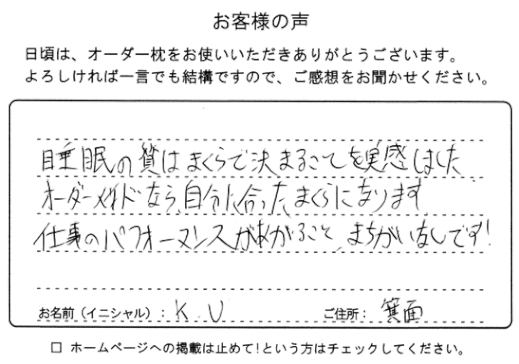 お客様の声
日頃は、オーダー枕をお使いいただきありがとうございます。
よろしければ一言でも結構ですので、ご感想をお聞かせください。
睡眠の質はまくらで決まることを実感しました
オーダーメイドなら、自分に合ったまくらになります
仕事のパフォーマンスがあがること、まちがいなしです!
お名前（イニシャル）： K．U　ご住所： 箕面
□ ホームページへの掲載は止めて!という方はチェックしてください。